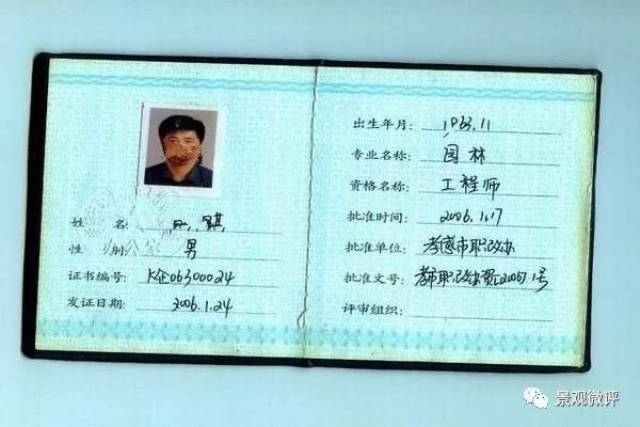 姓 名:
性 别: 男
证书编号: K企06300024
发证日期: 2006.1.24
出生年月: 1963.11
专业名称: 园林
资格名称: 工程师
批准时间: 2006.1.17
批准单位: 孝感市职改办
批准文号: 孝市职改办资[2006]1号
评审组织:
景观微评